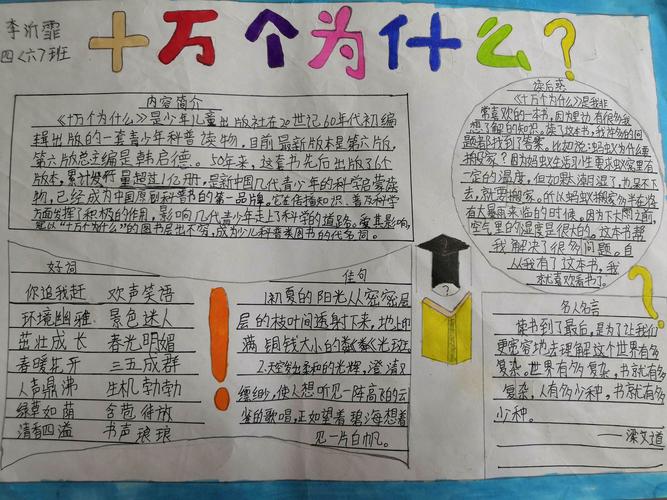 李沂霏
四(六)班
十万个为什么?
内容简介
《十万个为什么》是少年儿童出版社在20世纪60年代初编
辑出版的一套青少年科普读物,目前最新版本是第六版,
第六版总主编是韩启德。50年来,这套书先后出版了6个
版本,累计发行量超过1亿册,是新中国几代青少年的科学启蒙读
物,已经成为中国原创科普书的第一品牌,它在传播知识、普及科学
方面发挥了积极的作用,影响几代青少年走上了科学的道路。受其影响,
以“十万个为什么”的图书层出不穷,成为少儿科普类图书的代名词。
读后感
《十万个为什么》是我非
常喜欢的一本书,因为里边有很多我
想了解的知识。读了这本书,我许多的问
题都找到了答案。比如说:蚂蚁为什么要
搬家?因为蚂蚁生活习性要求蚁窝里有
一定的湿度,但如款潮湿了,也呆不下
去,就要搬家。所以蚂蚁搬家多半在将
有大暴雨来临的时候。因为下大雨之前,
空气里的湿度是很大的。这本书帮
我解决了很多问题。自
从我有了这本书,我
就喜欢看书了。
好词
你追我赶 欢声笑语
环境幽雅 景色迷人
茁壮成长 春光明媚
春暖花开 三五成群
人声鼎沸 生机勃勃
绿草如茵 含苞待放
清香四溢 书声琅琅
!
佳句
1.初夏的阳光从密密层
层的枝叶间透射下来,地上印
满铜钱大小的粼粼光斑。
2.天空发出柔和的光辉,澄清又
缥缈,使人想听见一阵高飞的云
雀的歌唱,正如望着碧海想着
见一片白帆。
?
?
名人名言
读书到了最后,是为了让我们
更宽容地去理解这个世界有多
复杂。世界有多复杂,书就有多
复杂,人有多少种,书就有多
少种。
——梁文道